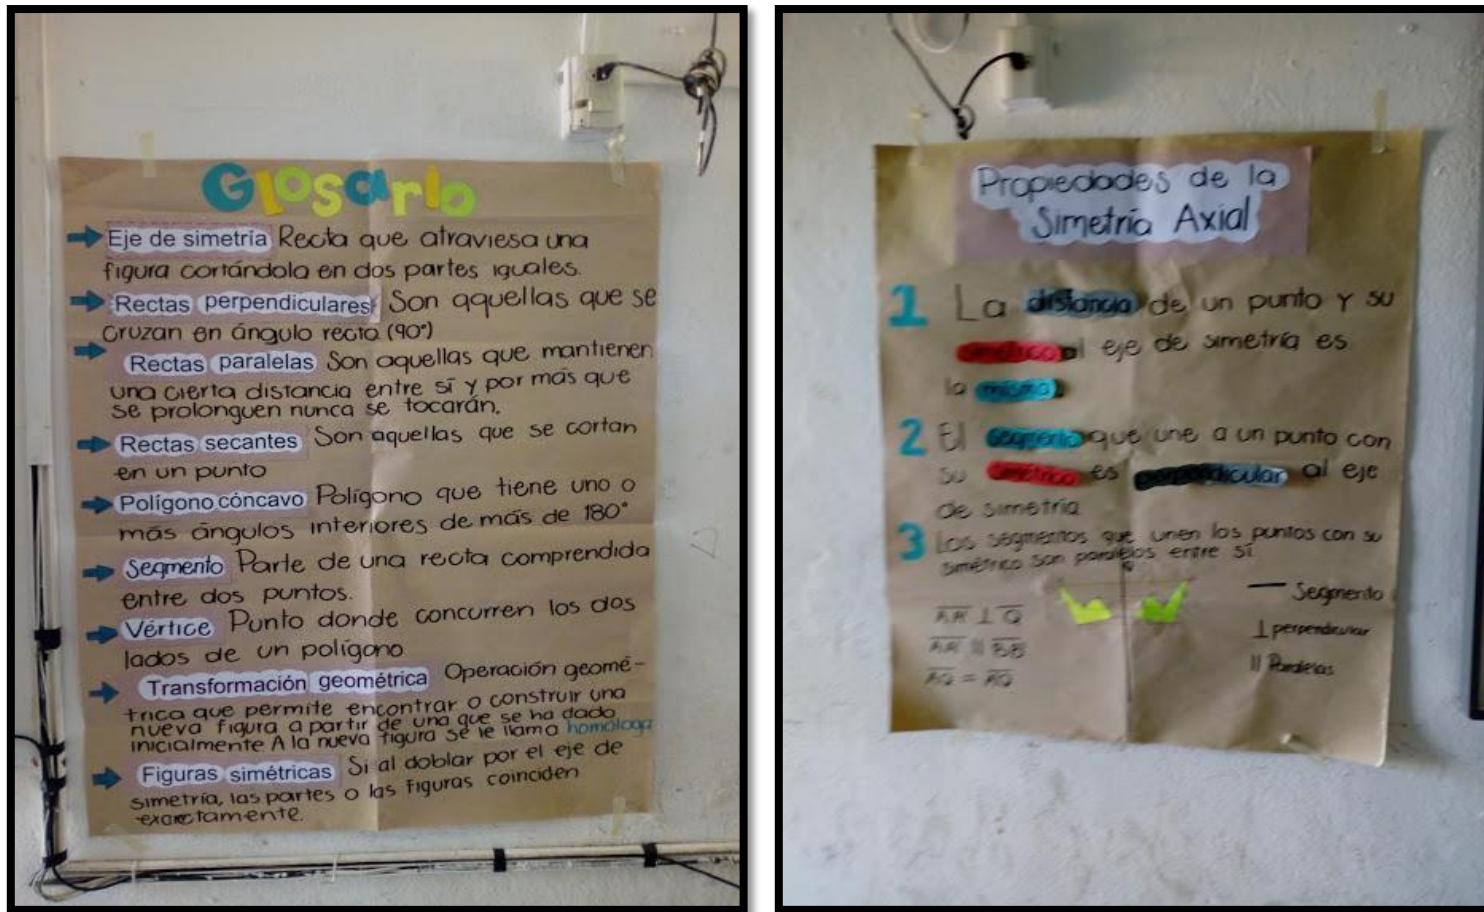 Glosario
Eje de simetría Recta que atraviesa una
figura cortándola en dos partes iguales.
Rectas perpendiculares Son aquellas que se
cruzan en ángulo recto (90°)
Rectas paralelas Son aquellas que mantienen
una cierta distancia entre sí y por más que
se prolonguen nunca se tocarán.
Rectas secantes Son aquellas que se cortan
en un punto
Polígono cóncavo Polígono que tiene uno o
más ángulos interiores de más de 180°
Segmento Parte de una recta comprendida
entre dos puntos.
Vértice Punto donde concurren los dos
lados de un polígono
Transformación geométrica Operación geomé-
trica que permite encontrar o construir una
nueva figura a partir de una que se ha dado
inicialmente A la nueva figura se le llama homóloga
Figuras simétricas Si al doblar por el eje de
simetría, las partes o las figuras coinciden
exactamente.
Propiedades de la
Simetría Axial
1 La distancia de un punto y su
simétrico al eje de simetría es
la misma.
2 El segmento que une a un punto con
su simétrico es perpendicular al eje
de simetría
3 Los segmentos que unen los puntos con su
simétrico son paralelos entre sí.
— Segmento
⊥ perpendicular
|| Paralelas